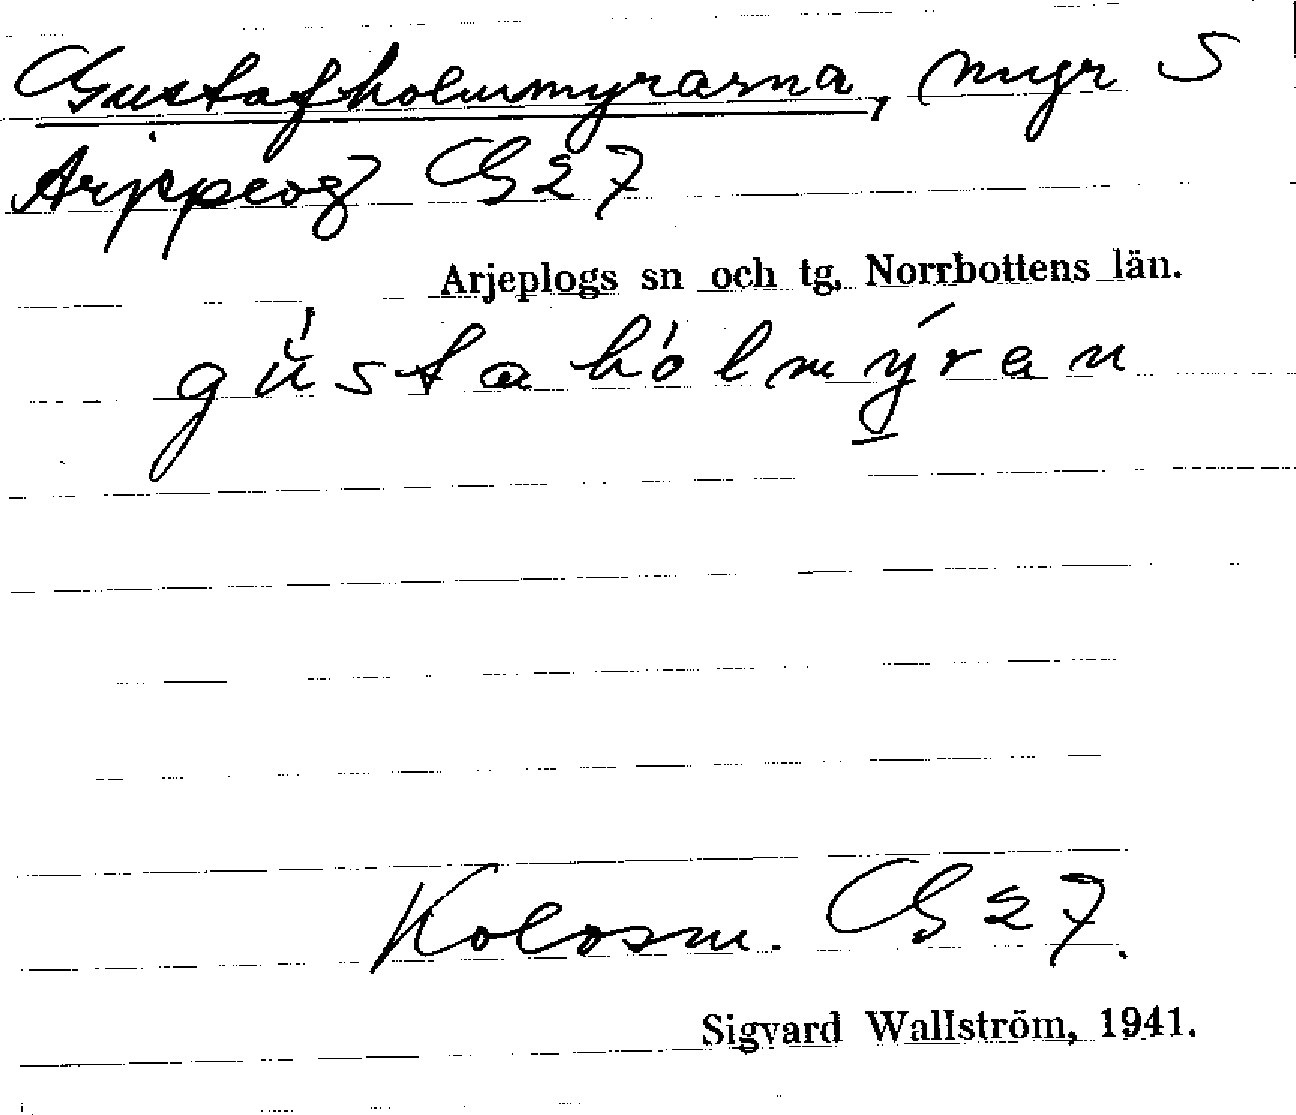 Gustafholmmyrarna, myr S
Arjeplog G 27
Arjeplogs sn och tg, Norrbottens län.
gústahólmýran
G 27.
Sigvard Wallström, 1941.